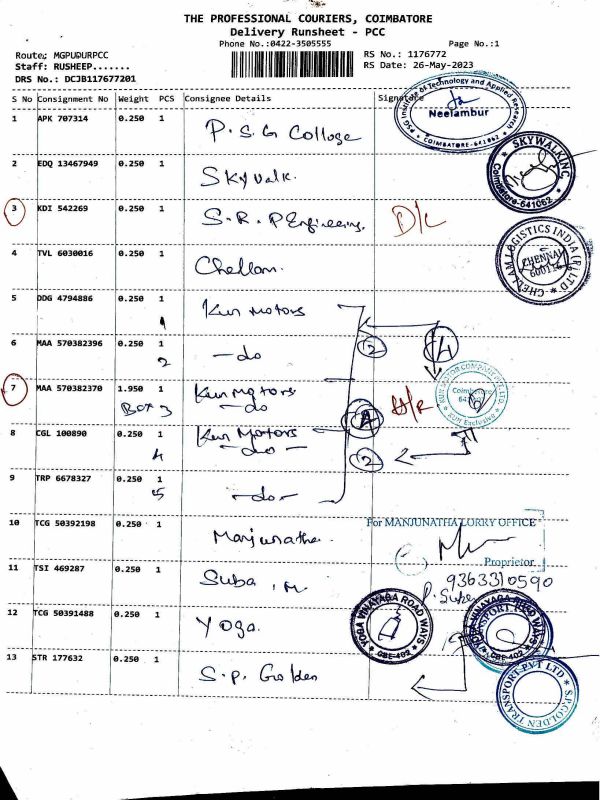 THE PROFESSIONAL COURIERS, COIMBATORE
Delivery Runsheet - PCC
Phone No.:0422-3505555 Page No.:1
Route: MGPUDURPCC RS No.: 1176772
Staff: RUSHEEP....... RS Date: 26-May-2023
DRS No.: DCJB117677201
S No Consignment No Weight PCS Consignee Details Signature
1 APK 707314 0.250 1 P.S.G College
PSG Institute of Technology and Applied Research
Neelambur
COIMBATORE-641062
2 EDQ 13467949 0.250 1 Skywalk.
SKYWALKINC
Coimbatore-641062
3 KDI 542269 0.250 1 S.R.P Engineering. D/c
4 TVL 6030016 0.250 1 Chellam.
CHELLAM LOGISTICS INDIA (P) LTD
CHENNAI
5 DDG 4794886 0.250 1 Kun Motors
1
6 MAA 570382396 0.250 1 - do
2 2 4
7 MAA 570382370 1.950 1 Kun Motors
Box 3 - do
KUN MOTOR COMPANY PVT LTD
Coimbatore
KUN Exclusive
8 CGL 100890 0.250 1 Kun Motors
4 - do - 2
9 TRP 6678327 0.250 1
5 - do -
10 TCG 50392198 0.250 1 Manjunatha.
For MANJUNATHA LORRY OFFICE
Proprietor
11 TSI 469287 0.250 1 Suba . M.
9363310590
12 TCG 50391488 0.250 1 Yoga.
YOGA VINAYAGA ROAD WAYS
CBE-402
YOGA VINAYAGA ROAD WAYS
CBE-402
13 STR 177632 0.250 1 S.P. Golden
S.P.GOLDEN TRANSPORT PVT LTD